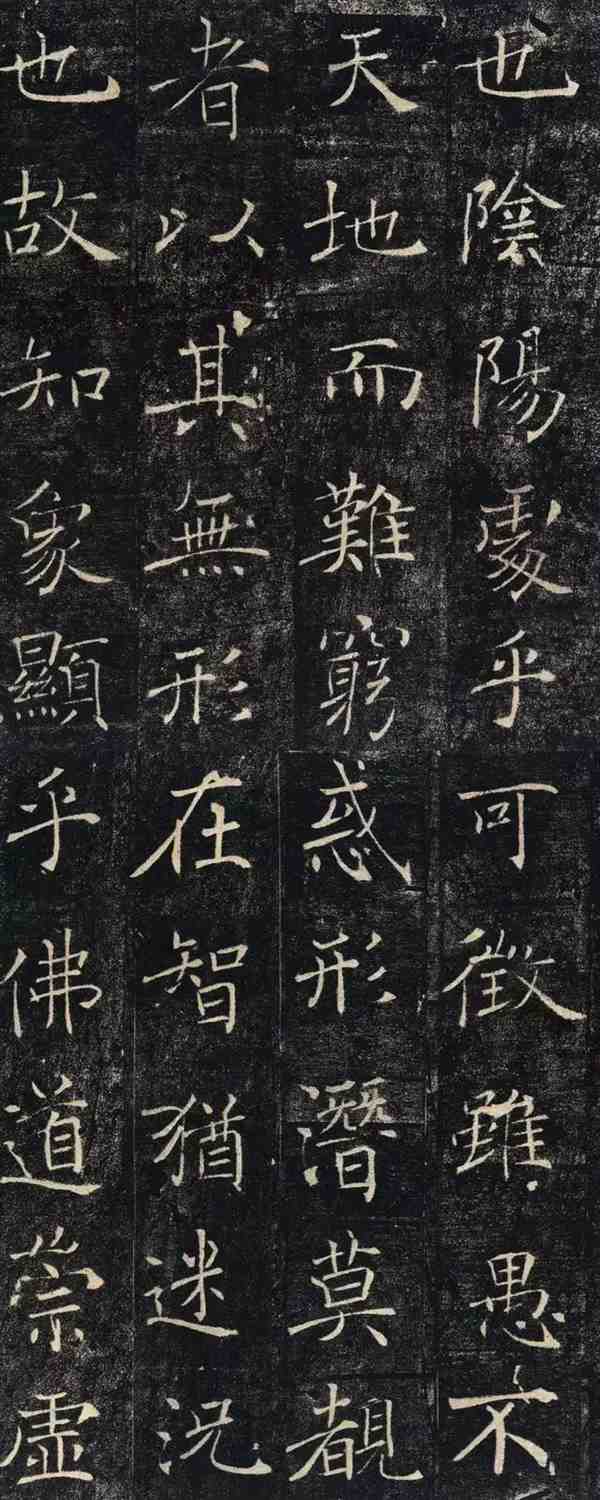 也陰陽處乎可徵雖愚不
天地而難窮惑形潛莫覩
者以其無形在智猶迷況
也故知象顯乎佛道崇虛